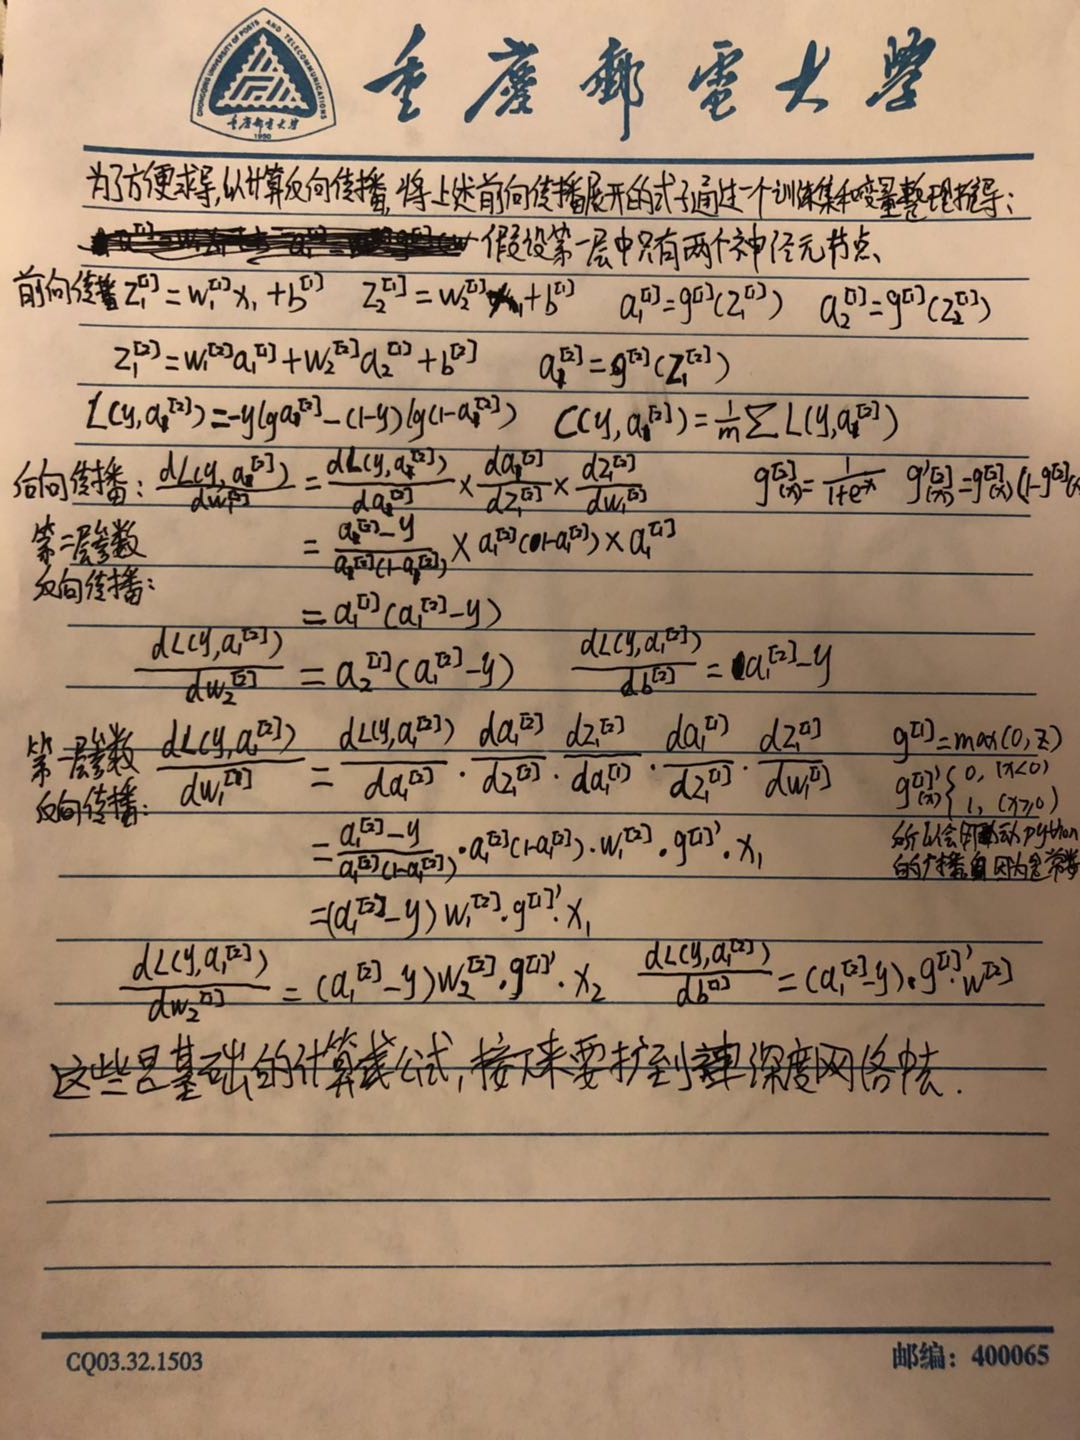 CHONGQING UNIVERSITY OF POSTS AND TELECOMMUNICATIONS
重庆邮电大学
1950
重慶郵電大學
为了方便求导,以计算反向传播,将上述前向传播展开的式子通过一个训练集和变量整理推导:
假设第一层中只有两个神经元节点、
前向传播 z₁^[1]=w₁^[1]x₁+b^[1] z₂^[1]=w₂^[1]x₁+b^[1] a₁^[1]=g^[1](z₁^[1]) a₂^[1]=g^[1](z₂^[1])
z₁^[2]=w₁^[2]a₁^[1]+w₂^[2]a₂^[1]+b^[2] a₁^[2]=g^[2](z₁^[2])
L(y,a₁^[2])=-ylga₁^[2]-(1-y)lg(1-a₁^[2]) C(y,a₁^[2])=1/m∑L(y,a₁^[2])
后向传播: dL(y,a₁^[2])/dw₁^[2] = dL(y,a₁^[2])/da₁^[2] × da₁^[2]/dz₁^[2] × dz₁^[2]/dw₁^[2] g^[2](x)=1/(1+e^x) g'^[2](x)=g^[2](x)(1-g^[2](x)
第二层参数 = (a₁^[2]-y)/(a₁^[2](1-a₁^[2])) × a₁^[2](1-a₁^[2]) × a₁^[1]
反向传播:
= a₁^[1](a₁^[2]-y)
dL(y,a₁^[2])/dw₂^[2] = a₂^[1](a₁^[2]-y) dL(y,a₁^[2])/db^[2] = a₁^[2]-y
第一层参数 dL(y,a₁^[2])/dw₁^[1] = dL(y,a₁^[2])/da₁^[2] · da₁^[2]/dz₁^[2] · dz₁^[2]/da₁^[1] · da₁^[1]/dz₁^[1] · dz₁^[1]/dw₁^[1] g^[1]=max(0,z)
反向传播: g^[1]'(x){0, (x<0)
1, (x≥0)
= (a₁^[2]-y)/(a₁^[2](1-a₁^[2])) · a₁^[2](1-a₁^[2]) · w₁^[2] · g^[1]' · x₁
所以会动python
的广播因为是常数
=(a₁^[2]-y)w₁^[2]·g^[1]'·x₁
dL(y,a₁^[2])/dw₂^[1] = (a₁^[2]-y)w₂^[2]·g^[1]'·x₂ dL(y,a₁^[2])/db^[1] = (a₁^[2]-y)·g^[1]'·w^[2]
这些是基础的计算公式,接下来要扩到深度网络中去.
CQ03.32.1503
邮编：400065